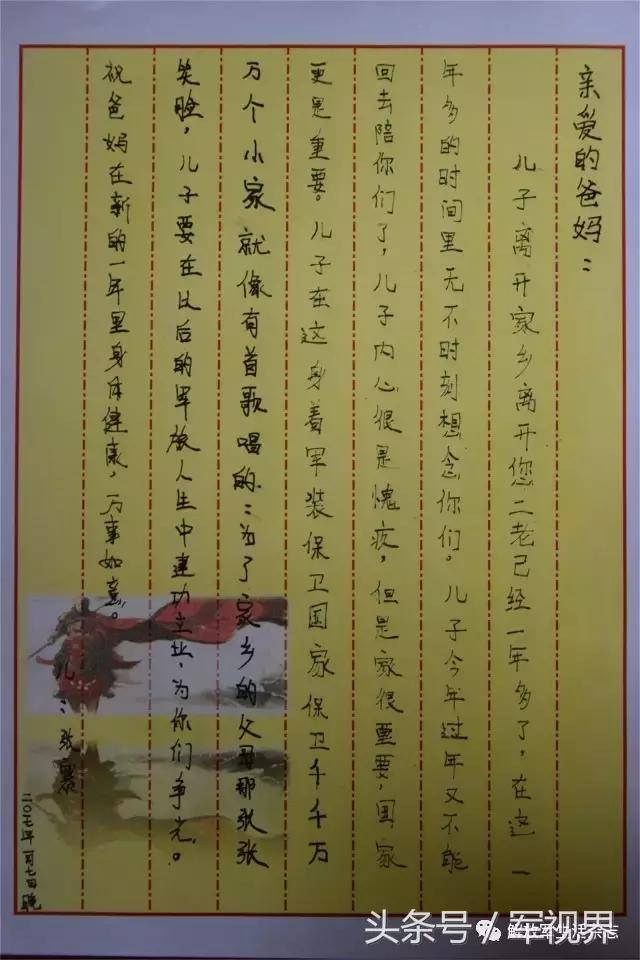 亲爱的爸妈：
儿子离开家乡离开您二老已经一年多了，在这一
年多的时间里无不时刻想念你们。儿子今年过年又不能
回去陪你们了，儿子内心很是愧疚，但是家很重要，国家
更是重要。儿子在这身着军装保卫国家保卫千千万
万个小家就像有首歌唱的：为了家乡的父母那张张
笑脸，儿子要在以后的军旅人生中建功立业，为你们争光。
祝爸妈在新的一年里身体健康，万事如意。
儿：张
二〇一七年一月七日晚
头条号／军视界
解放军生活杂志